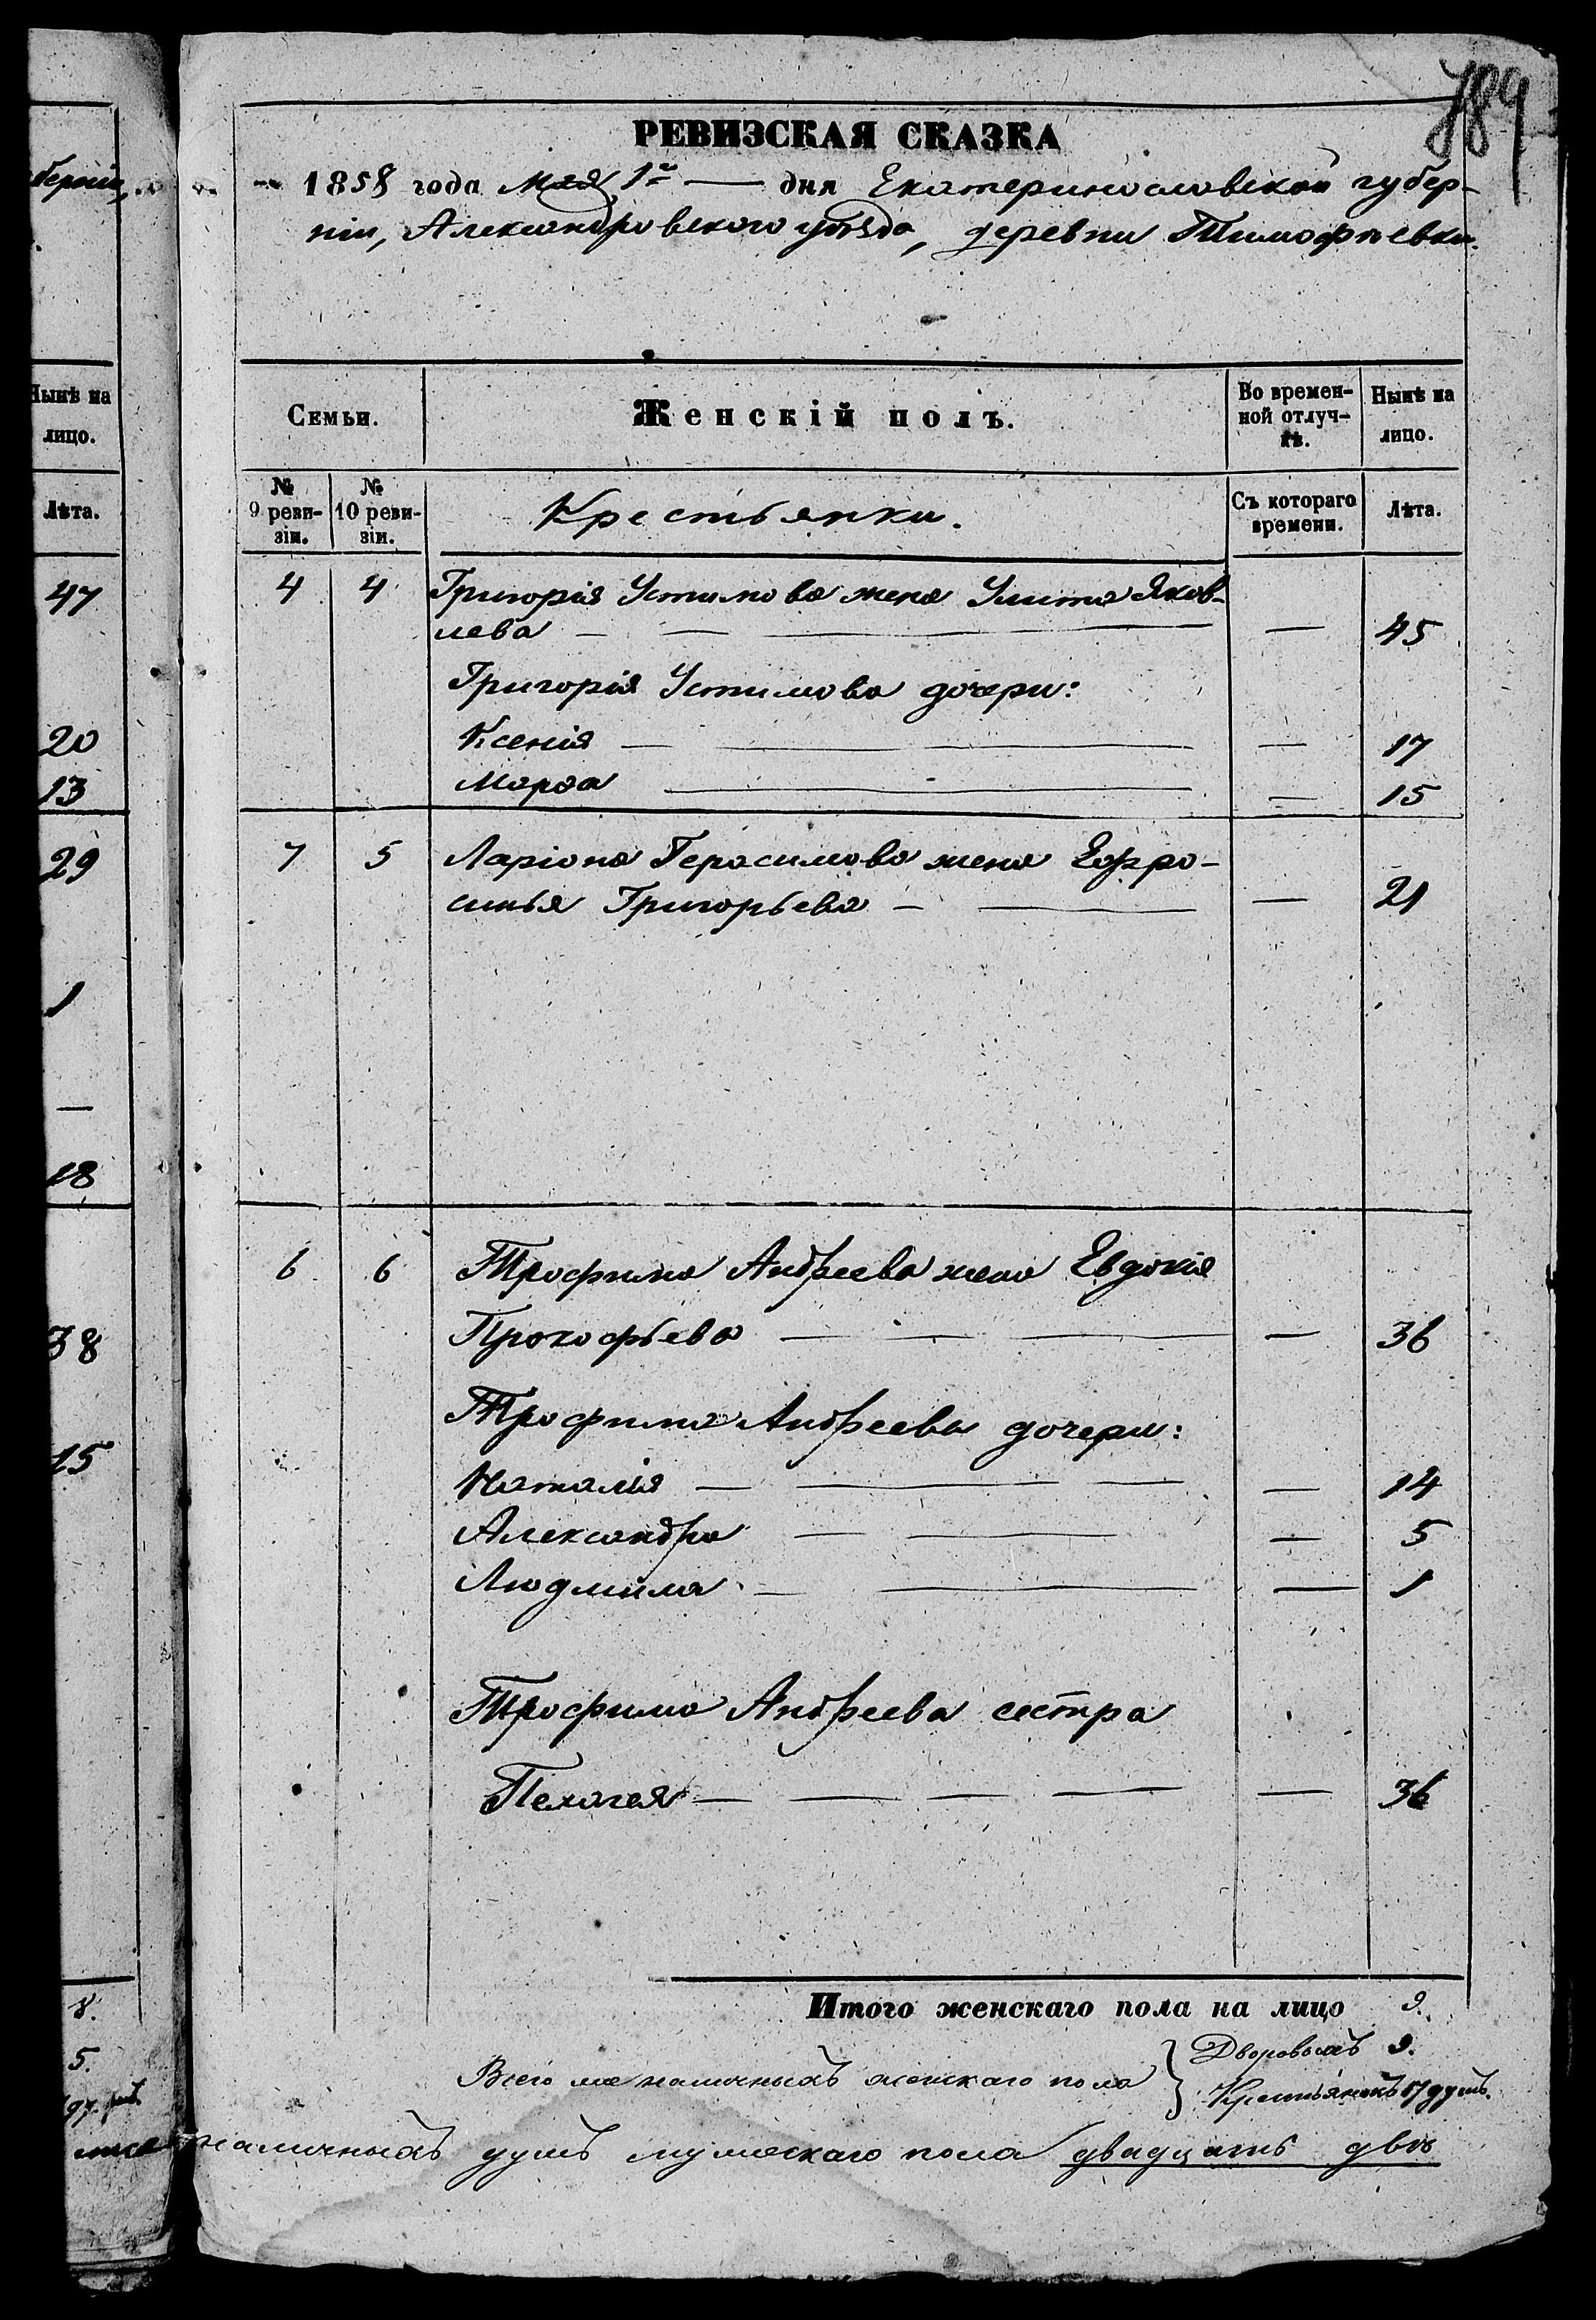 789
РЕВИЗСКАЯ СКАЗКА
1858 года Мая 1го дня Екатеринославской губер-
ніи, Александровского уѣзда, деревни Тимофѣевки.
берніи,
Ныне на
лицо.
Лѣта.
47
20
13
29
1
18
38
15
8.
5.
Семьи.
Женскій полъ.
Во времен-
ной отлуч-
кѣ.
Нынѣ на
лицо.
№
9 реви-
зіи.
№
10 реви-
зіи.
Крестьянки.
Съ котораго
времени.
Лѣта.
4 4 Григорія Устимова жена Улита Яков-
лева — — — — 45
Григорія Устимова дочери:
Ксенія — — — — 17
Марѳа — — 15
7 5 Ларіона Герасимова жена Ефро-
синья Григорьева — — — 21
6 6 Трофима Андреева жена Евдокія
Прокофьева — — — — 36
Трофима Андреева дочери:
Наталія — — — — 14
Александра — — — 5
Людмила — — — 1
Трофима Андреева сестра
Пелагея — — — — — 36
Итого женскаго пола на лицо 9.
Всего же наличныхъ женскаго пола } Дворовыхъ 9.
Крестьянокъ 17 душъ.
наличныхъ душъ мужескаго пола двадцать две